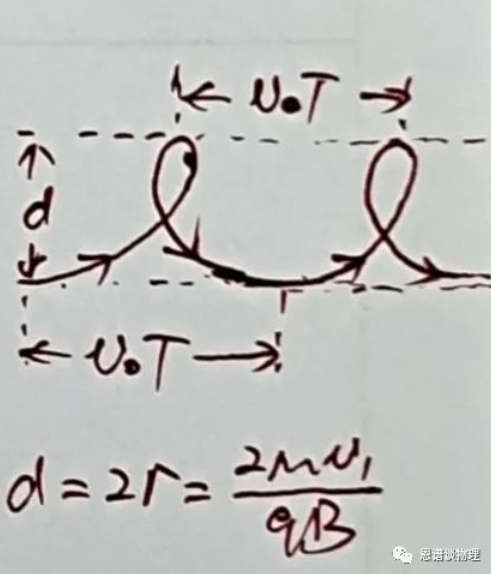 v₀T
d
v₀T
d = 2r = 2mv₁/qB
恩谱谈物理